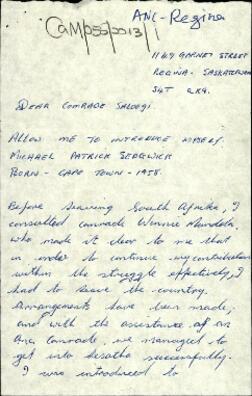 ANC-Regina
CAM/055/0013/1
1169 GARNET STREET
REGINA - SASKATCHEWAN
S4T 2X9.
DEAR COMRADE
ALLOW ME TO INTRODUCE MYSELF.
MICHAEL PATRICK SEDGWICK
BORN - CAPE TOWN - 1958.
Before leaving South Africa, I
consulted comrade Winnie Mandela,
who made it clear to me that
in order to continue my contribution
within the struggle effectively, I
had to leave the country.
Arrangements have been made,
and with the assistance of an
Anc Comrade, we managed to
get into Lesotho successfully.
I was introduced to